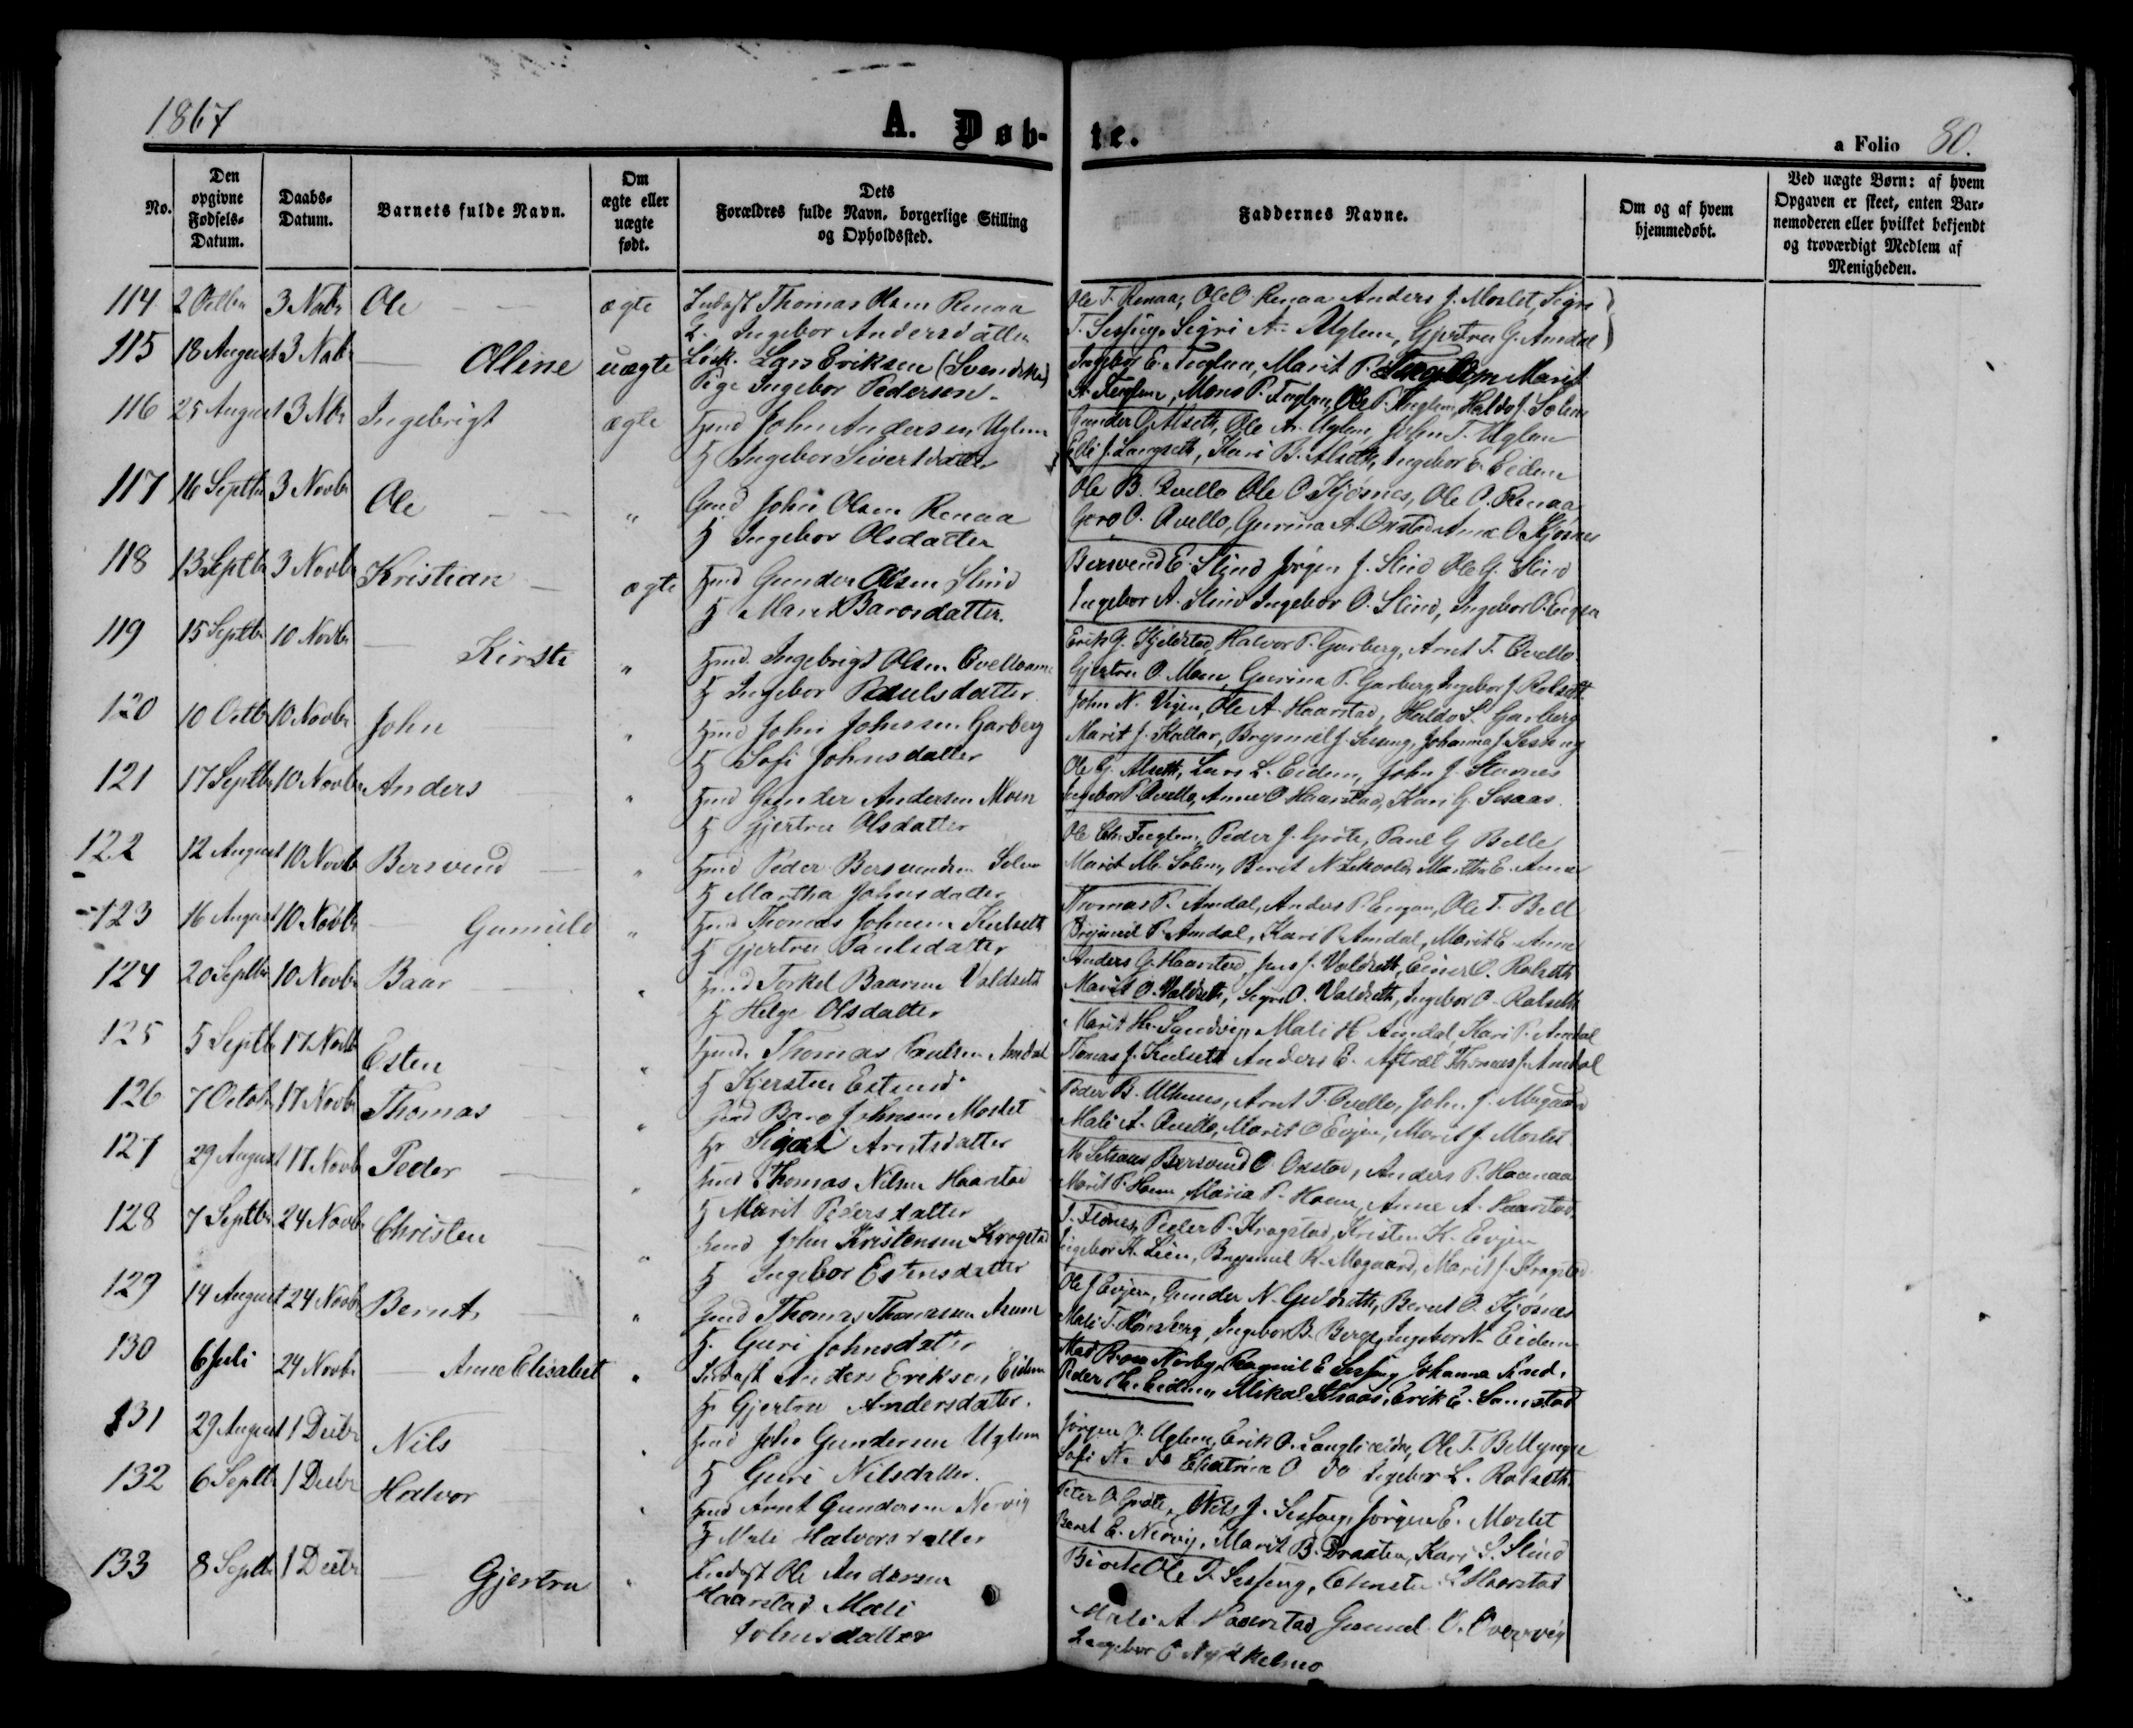 1867
A. Døb-
te.
a Folio 80.
No.
Den opgivne Fødsels-Datum.
Daabs-Datum.
Barnets fulde Navn.
Om ægte eller uægte født.
Dets Forældres fulde Navn, borgerlige Stilling og Opholdssted.
Faddernes Navne.
Om og af hvem hjemmedøbt.
Ved uægte Børn: af hvem Opgaven er skeet, enten Barnemoderen eller hvilket bekjendt og troværdigt Medlem af Menigheden.
114 2 Octbr 3 Nobr Ole ægte Indst Thomas Olsen Renaa
Ingebor Andersdatter
Ole T. Renaa, Ole O. Renaa Anders J. Moslet, Sigri
T. Sesseng, Sigri A. Uglem, Gjertru G. Amdal
115 18 August 3 Nobr Olline uægte Løsk. Lars Eriksen (Svenske)
Pige Ingebor Pedersen.
Ingebor E. Fuglem, Marit P. Fuglem Marit
A. Fuglem, Mons P. Fuglem, Ole P. Fuglem, Haldo J. Solem
116 25 August 3 Nbr Ingebrigt ægte Gmd John Andersen Uglem
H Ingebor Sivertsdatter
Gunder O. Alseth, Ole A. Uglem, John T. Uglem
J. Langseth, Kari B. Alseth, Ingebor E. Eidem
117 16 Septbr 3 Novbr Ole " Gmd John Olsen Renaa
H Ingebor Olsdatter
Ole B. Qvello Ole O Kjøsnes, Ole O. Renaa
Goro O. Qvello, Gurina A. Onstad Anne O Kjøsnes
118 13 Septbr 3 Novbr Kristian ægte Gmd Gunder Olsen Slind
H Marit Baarsdatter.
Bersvend E. Slind Jørgen J. Slind Ole G. Slind
Ingebor A. Slind Ingebor O. Slind, Ingebor O. Engen
119 15 Septbr 10 Novbr Kirsti " Gmd. Ingebrigt Olsen Qvello
H Ingebor Paulsdatter
Erik G. Kjelstad, Halvor P. Garberg, Arnt T. Qvello
Gjertru O. Moen, Gurina P. Garberg, Ingebor J. Rolseth
120 10 Octbr 10 Novbr John " Gmd John Johnsen Garberg
H Sofi Johnsdatter
John N. Vigen, Ole A. Haarstad, Haldo S. Garberg
Marit J. Kallar, Brynnil J. Sesseng, Johanna J. Sesseng
121 17 Septbr 10 Novbr Anders " Gmd Gunder Andersen Moen
H Gjertru Olsdatter
Ole G. Alseth, Lars L. Eidem, John J. Stavnes
Ingebor P. Qvello, Anne O. Haarstad, Kari G. Sesaas.
122 12 August 10 Novbr Bersvend " Gmd Peder Bersvendsen Solem
H Martha Johnsdatter
Ole Chr. Fuglem, Peder J. Grøte, Paul G Bell
Marit M. Solem, Berit N. Marthe E.
123 16 August 10 Novbr Gunnild " Gmd Thomas Johnsen Kulseth
H Gjertru Paulsdatter
Thomas P. Amdal, Anders P. Engan, Ole T. Bell
Brynnil P. Amdal, Kari P. Amdal, Marit E.
124 20 Septbr 10 Novbr Baar " Gmd Torkel Baarsen Valdseth
H Helge Olsdatter
Anders G. Haarstad, Jens J. Valdseth, Einer O. Rolseth
Marit O. Valdseth, Sigri O. Valdseth, Ingebor O. Rolseth
125 5 Septbr 17 Novbr Esten " Gmd. Thomas Paulsen Amdal
H Kjersten Estensd.
Marit H. Sandvig Mali H Amdal, Kari P. Amdal
Thomas J. Kulseth Anders E. Aftret Thomas J. Amdal
126 7 Octobr 17 Novbr Thomas " Gmd Baro Johnsen Moslet
H. Sigri Arntsdatter
Peder B. Uthuus, Arnt T. Qvello, John J. Mogaard
Mali A. Qvello, Marit O Evjen, Marit J. Moslet
127 29 August 17 Novb Peder " Gmd Thomas Nilsen Haarstad
H Marit Pedersdatter
M. Setsaas, Bersvend O. Onstad, Anders P. Haanaa
Marit P. Moen, Maria P. Moen, Anne A. Haarstad.
128 7 Septbr 24 Novbr Christen " Gmd John Kristensen Kragstad
H Ingebor Estensdatter
J. Flønes, Peder P. Kragstad, Kristen K. Evjen
Ingebor K. Lien, Brynnil K. Mogaard, Marit J. Kragstad
129 14 August 24 Novbr Bernt " Gmd Thomas Thomassen Aune
H. Guri Johnsdatter
Ole J Evjen, Gunder N. Guldseth, Bernt O. Kjøsnes
Mali T. Rønsberg, Ingebor B. Berge, Ingebor N. Eidem
130 6 Juli 24 Novbr Anne Elisabet " Indst Anders Eriksen Eidem
H. Gjertru Andersdatter.
Mad Norby, Ragnil E Sesseng Johanna
Peder H. Eidem, Mikal Setsaas, Erik E. Samstad
131 29 August 1 Decbr Nils " Gmd John Gundersen Uglem
H Guri Nilsdatter.
Jørgen O. Uglem, Erik O. Langlieidre, Ole T. Bell yngre
Sofi N. do Chatrina O do Ingebor L. Rolseth
132 6 Septbr 1 Decbr Halvor " Gmd Arnt Gundersen Nervig
H Mali Halvorsdatter
Peter O Grøte, Nils J. Sesseng, Jørgen E. Moslet
Berit E. Nervig, Marit B. Draaten, Kari S. Slind
133 8 Septbr 1 Decbr Gjertru " Indst Ole Andersen
Haarstad Mali
Johnsdatter
Ole T. Sesseng, Haarstad
Mali A. Haarstad, Gunnil O. Overvig
Ingebor E.